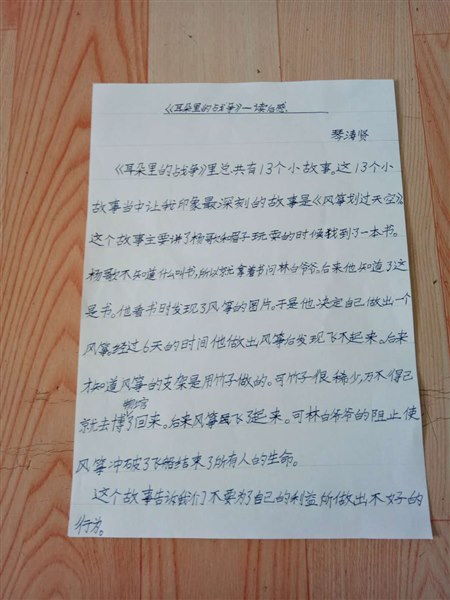 《耳朵里的战争》一读后感.
琴涛贤
《耳朵里的战争》里总共有13个小故事。这13个小
故事当中让我印象最深刻的故事是《风筝划过天空》
这个故事主要讲了杨歌和帽子玩耍的时候找到了一本书。
杨歌不知道什么叫书,所以就拿着书问林白爷爷。后来他知道了这
是书。他看书时发现了风筝的图片。于是他决定自己做出一个
风筝。经过6天的时间他做出风筝后发现飞不起来。后来
才知道风筝的支架是用竹子做的。可竹子很稀少,万不得已
就去博物馆了回来。后来风筝飞了起来。可林白爷爷的阻止使
风筝冲破了飞船结束了所有人的生命。
这个故事告诉我们不要为了自己的利益所做出不好的
行为。